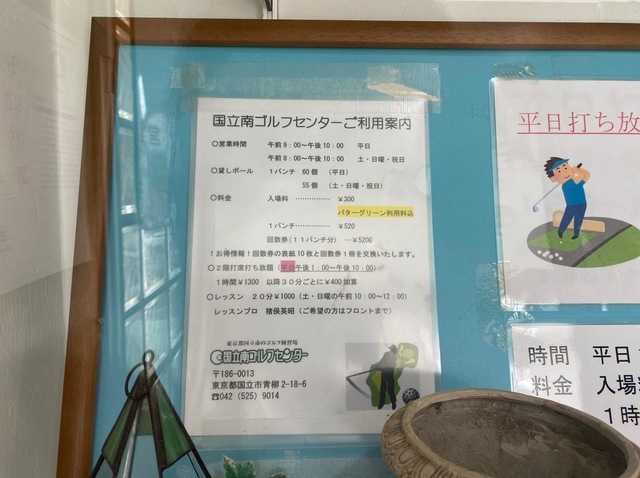 国立南ゴルフセンターご利用案内
○営業時間 午前9:00~午後10:00 平日
午前8:00~午後10:00 土・日曜・祝日
○貸しボール 1パンチ 60個 (平日)
55個 (土・日曜・祝日)
○料金 入場料 …………… ¥300
パターグリーン利用料込
1パンチ …………… ¥520
回数券(11パンチ分) …¥5200
!お得情報!回数券の表紙10枚と回数券1冊を交換いたします。
○2階打席打ち放題 (平日午後1:00~午後10:00)
1時間¥1300 以降30分ごとに¥400加算
○レッスン 20分¥1000(土・日曜の午前10:00~12:00)
レッスンプロ 猪俣英昭 (ご希望の方はフロントまで)
東京都国立市のゴルフ練習場
国立南ゴルフセンター
〒186-0013
東京都国立市青柳2-18-6
☎042(525)9014
平日打ち放
時間 平日
料金 入場料
1時